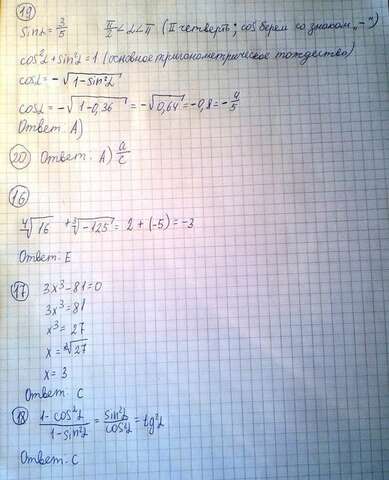 19
sinα = 3/5   π/2 < α < π (II четверть; cos берем со знаком „-")
cos²α + sin²α = 1 (основное тригонометрическое тождество)
cosα = -√(1-sin²α)
cosα = -√(1-0,36) = -√0,64 = -0,8 = -4/5
Ответ: А)
20 Ответ: А) a/c
16
⁴√16 + ³√-125 = 2 + (-5) = -3
Ответ: Е
17 3x³-81=0
3x³=81
x³ = 27
x = ³√27
x = 3
Ответ: С
18 (1-cos²α)/(1-sin²α) = sin²α/cos²α = tg²α
Ответ: С